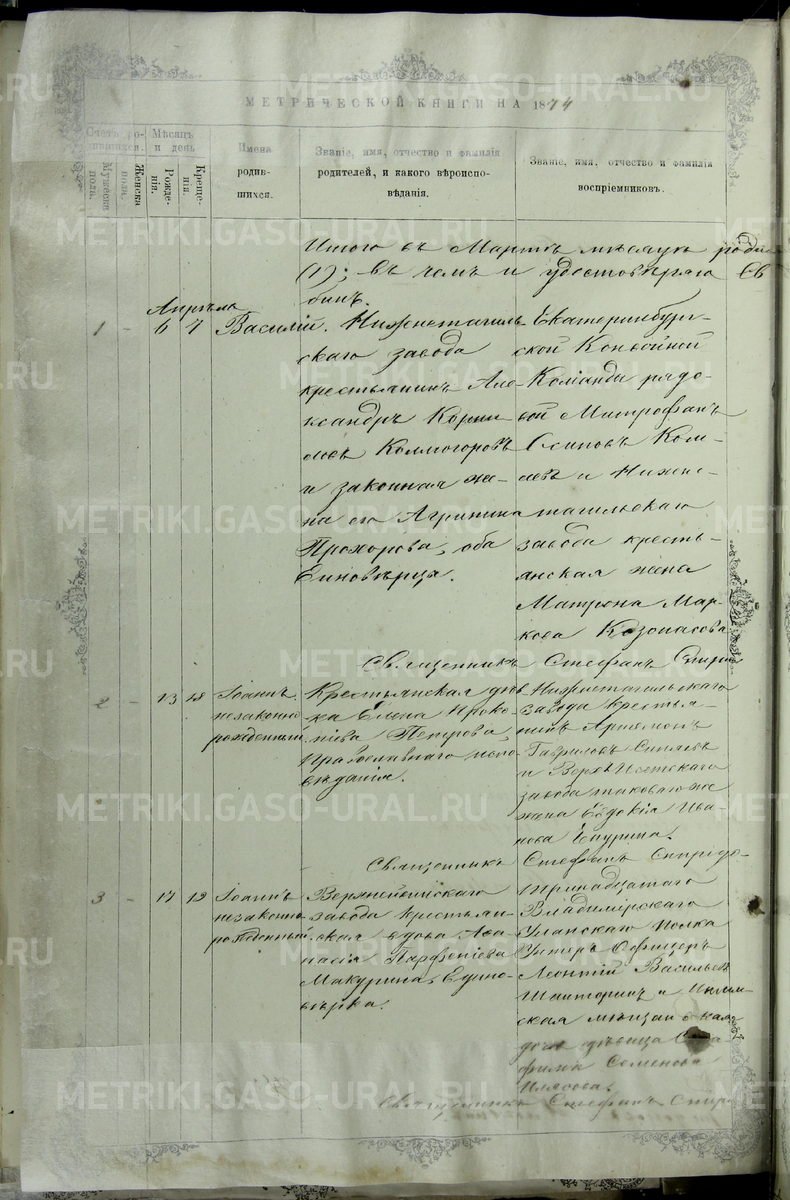 МЕТРИЧЕСКОЙ КНИГИ НА 1874
Счетъ ро-
дившихся.
Мужеска пола.
Женска пола.
Мѣсяцъ и день
Рожде-
нія.
Креще-
нія.
Имена
родив-
шихся.
Званіе, имя, отчество и фамилія
родителей, и какого вѣроиспо-
вѣданія.
Званіе, имя, отчество и фамилія
воспріемниковъ.
Итого въ Мартѣ мѣсяцѣ роди
(1); въ чемъ и удостовѣряю
Апрѣль
1 - 6 7 Василій.
Нижнетагиль-
скаго завода
крестьянинъ Але-
ксандръ Корни
ловъ Колмогоровъ
и законная же-
на его Агрипина
Прохорова, оба
Единовѣрца.
Екатеринбург-
ской Конвойной
Команды рядо-
вой Митрофанъ
Осиповъ
и Нижне-
тагильскаго
завода кресть-
янская жена
Матрона Мар-
кова
Священникъ Стефанъ Спири
2 - 13 18 Іоаннъ
незаконно
рожденный.
Крестьянская дѣв
ка Елена Проко-
піева Петрова,
Православнаго испо
вѣданія.
Нижнетагильскаго
завода крестья-
нинъ
Гавриловъ
и Верхъ Исетскаго
завода таковаго же
жена Евдокія Ива
нова
Священникъ Стефанъ Спиридо-
3 - 17 19 Іоаннъ
незаконно
рожденный.
Верхнейвинскаго
завода крестьян-
ская вдова Аѳа
насія Парфеніева
Макурина, Едино-
вѣрка.
Тринадцатаго
Владимірскаго
Уланскаго полка
Унтеръ Офицеръ
Леонтій Васильевъ
и
ская мѣщанская
дочь дѣвица Сера
фима Семенова
Священникъ Стефанъ Спир
METRIKI.GASO-URAL.RU